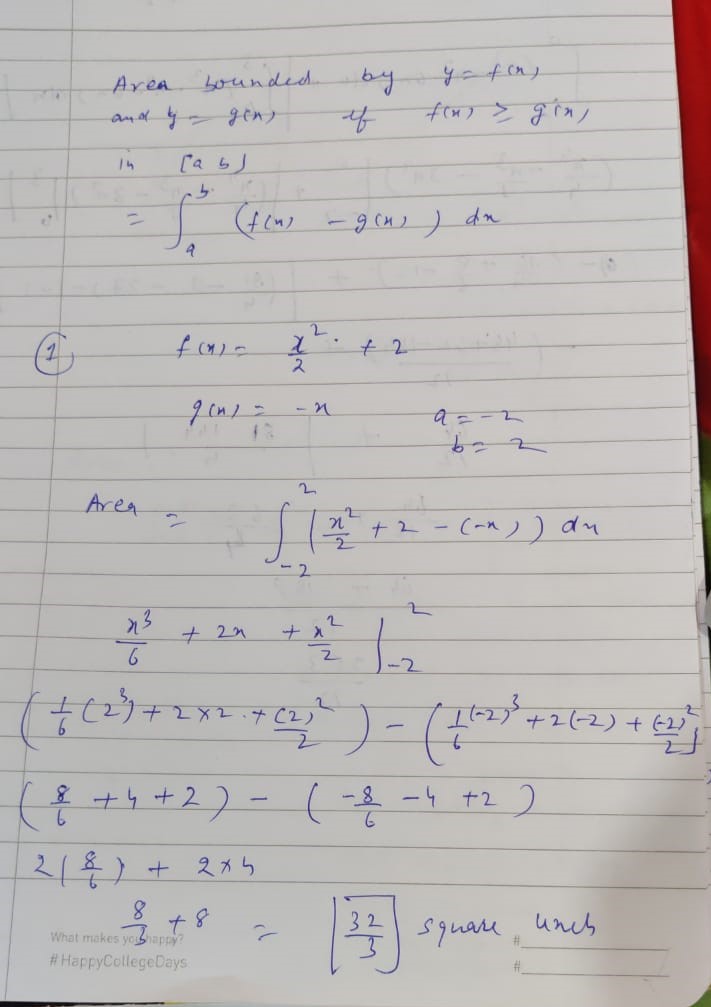 Area bounded by y = f(x)
and y = g(x) if f(x) ≥ g(x)
in [a b]
= ∫_a^b (f(x) - g(x)) dx
① f(x) = x²/2 + 2
g(x) = -x a = -2
b = 2
Area = ∫_{-2}^{2} (x²/2 + 2 - (-x)) dx
x³/6 + 2x + x²/2 |_{-2}^{2}
(1/6 (2³) + 2×2 + (2)²/2) - (1/6 (-2)³ + 2(-2) + (-2)²/2)
(8/6 + 4 + 2) - (-8/6 - 4 + 2)
2(8/6) + 2×4
8/3 + 8 = [32/3] square units
What makes you happy? #
# HappyCollegeDays #